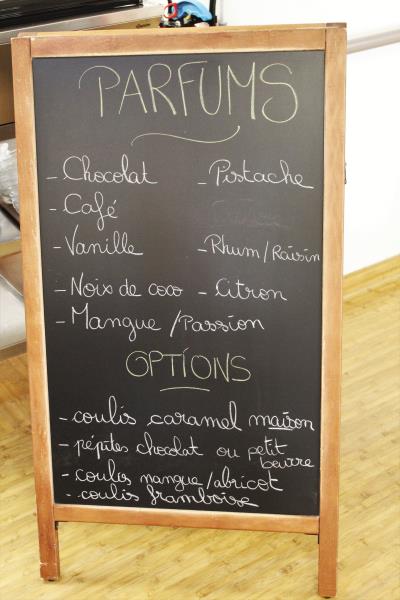 PARFUMS
- Chocolat - Pistache
- Café
- Vanille - Rhum/Raisin
- Noix de coco - Citron
- Mangue/Passion
OPTIONS
- coulis caramel maison
- pépites chocolat ou petit
beurre
- coulis mangue/abricot
- coulis framboise